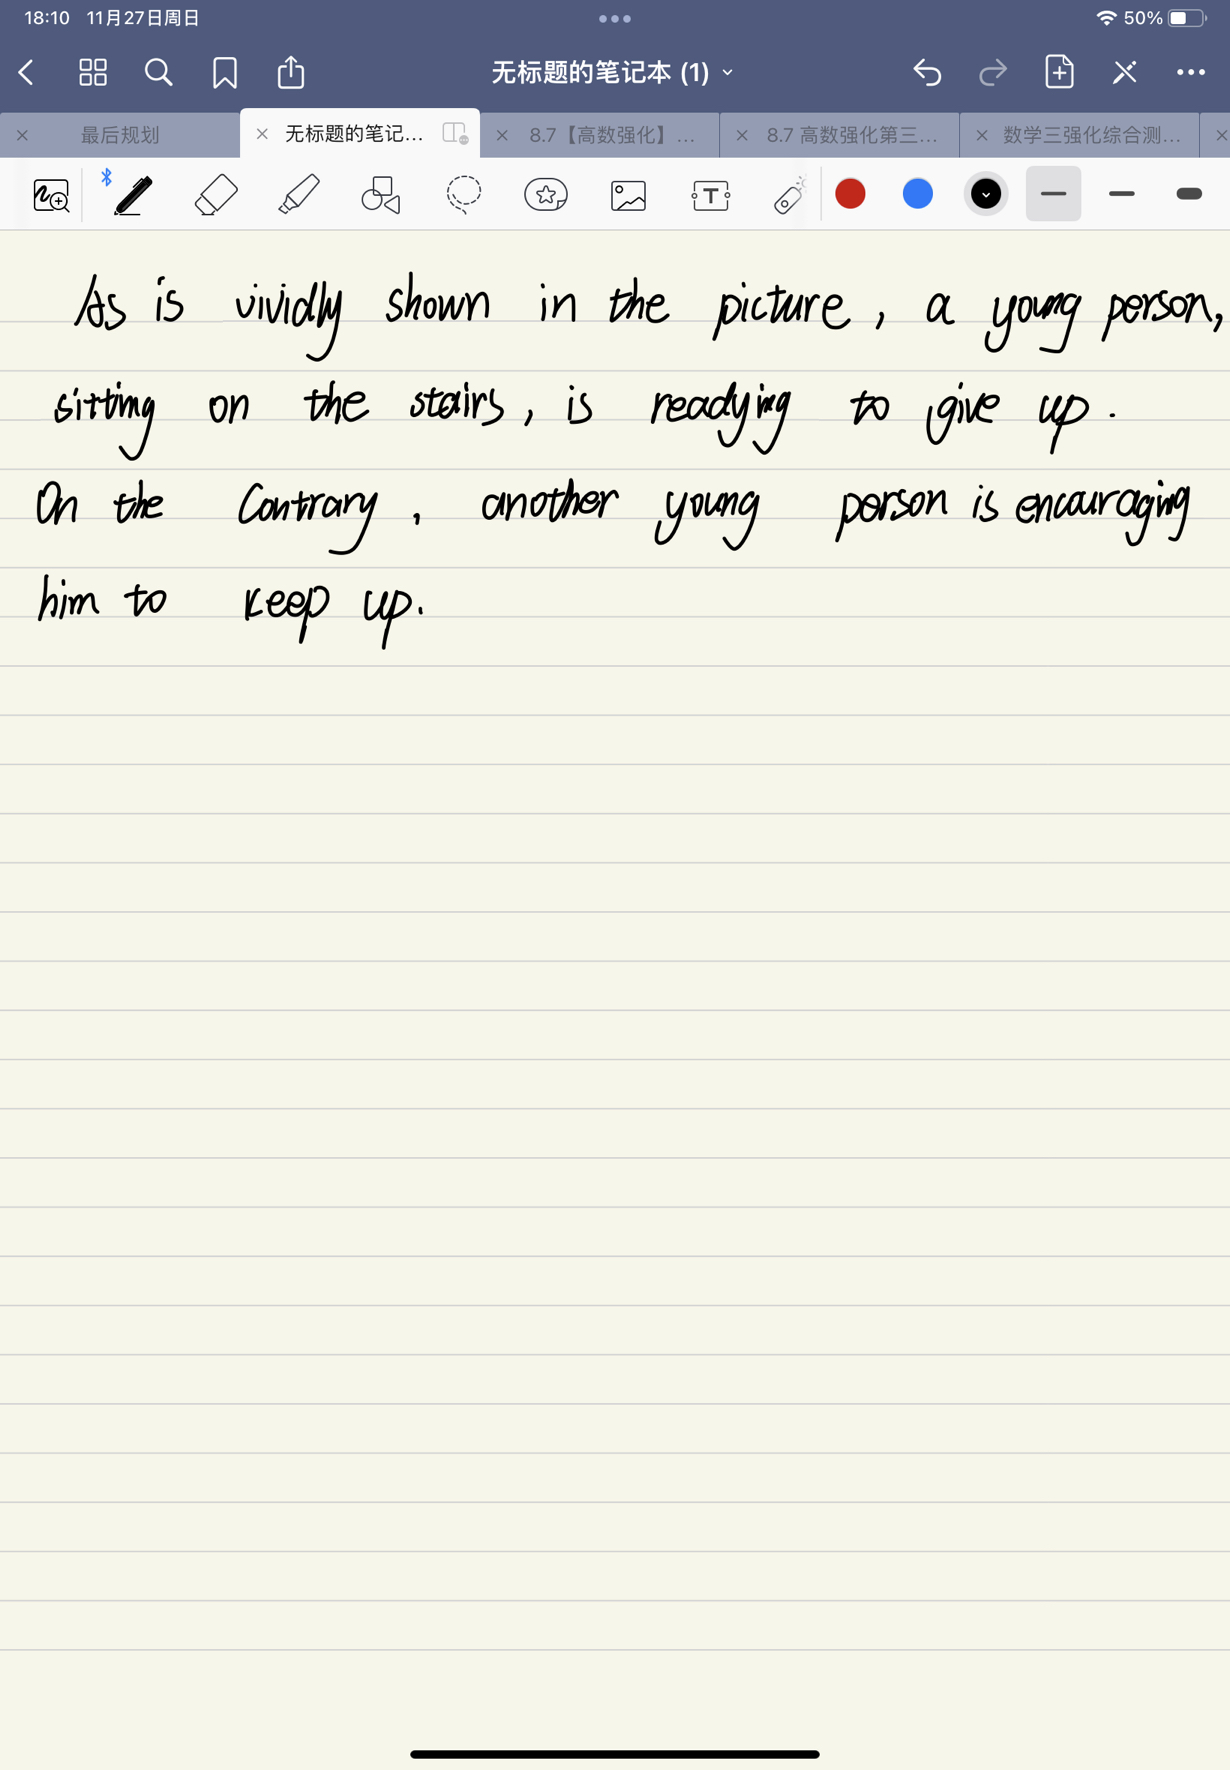 18:10 11月27日周日
50%
无标题的笔记本 (1)
最后规划
无标题的笔记...
8.7【高数强化】...
8.7 高数强化第三...
数学三强化综合测...
As is vividly shown in the picture, a young person,
sitting on the stairs, is readying to give up.
On the Contrary, another young person is encouraging
him to keep up.